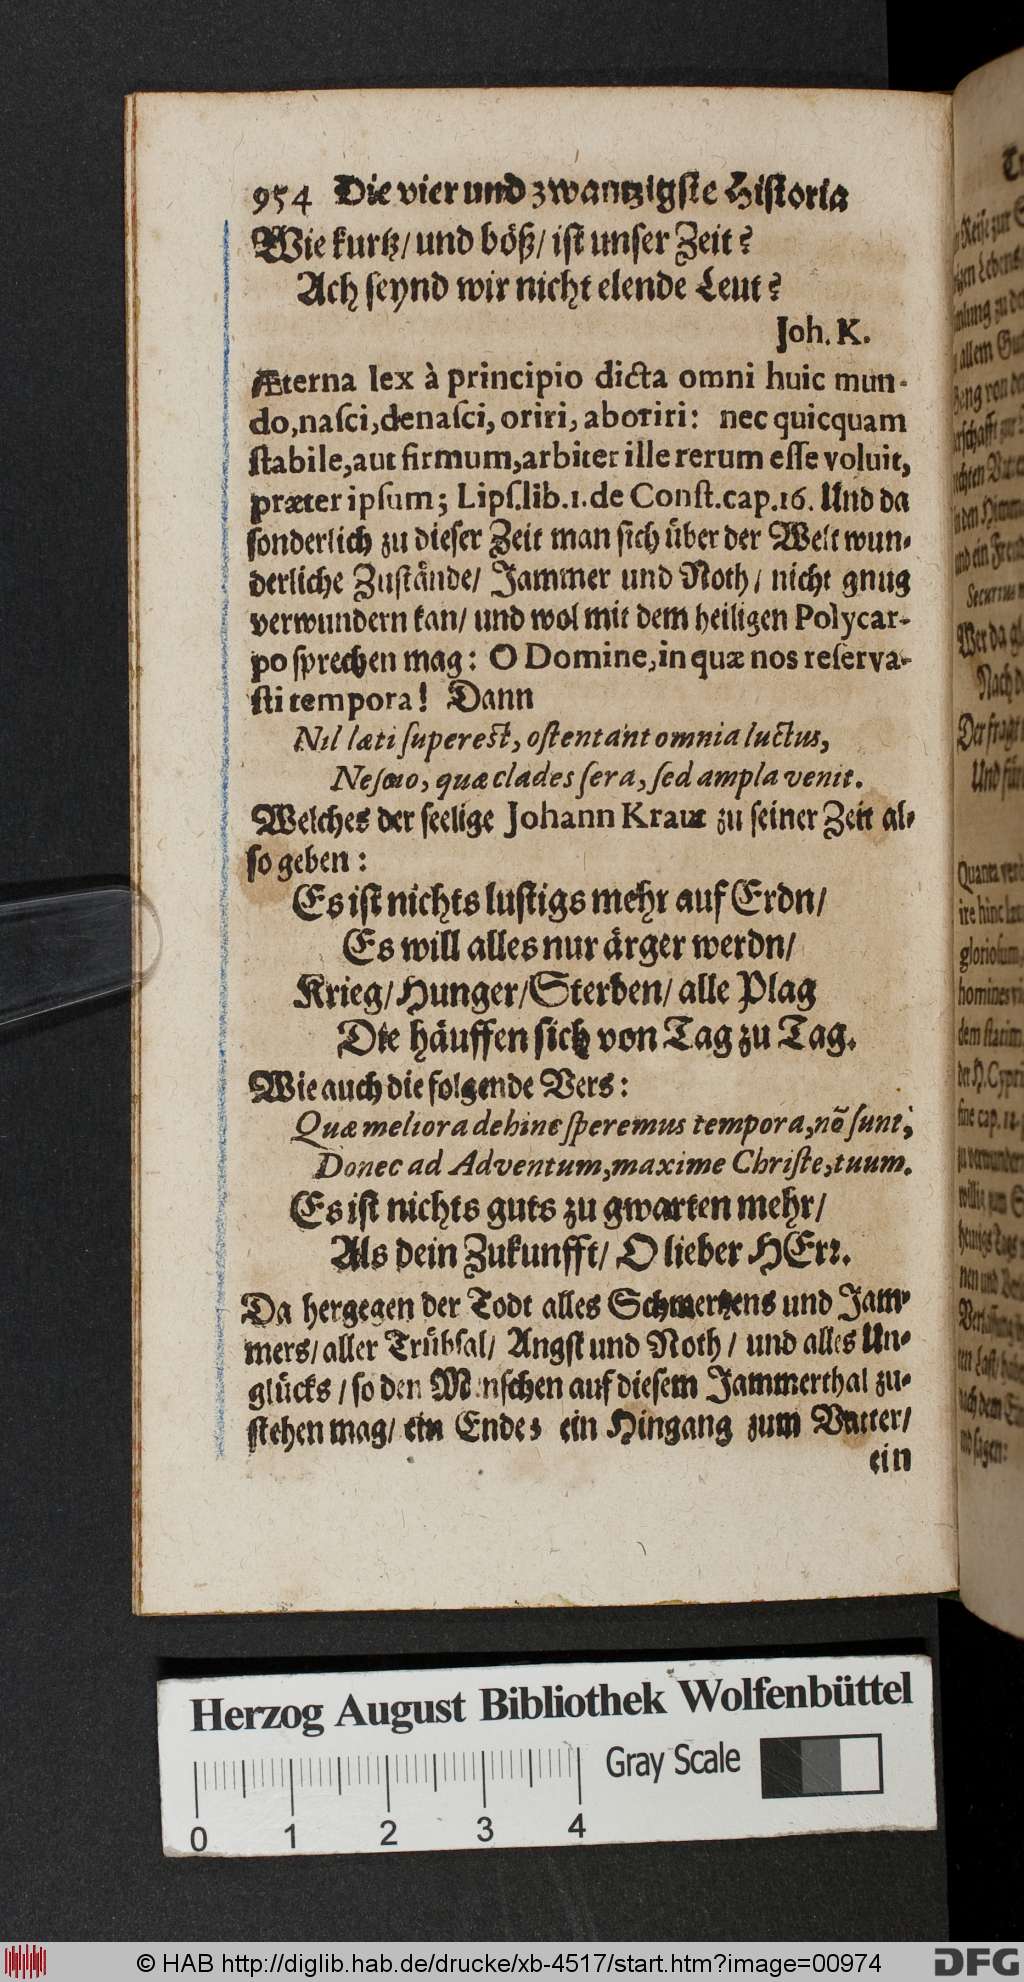 954 Die vier und zwantzigste Historia
Wie kurtz/ und böß/ ist unser Zeit?
Ach seynd wir nicht elende Leut?
Joh. K.
Æterna lex à principio dicta omni huic mun-
do, naſci, denaſci, oriri, aboriri: nec quicquam
ſtabile, aut firmum, arbiter ille rerum eſſe voluit,
præter ipſum; Lipſ. lib. 1. de Conſt. cap. 16. Und da
sonderlich zu dieser Zeit man sich über der Welt wun-
derliche Zustände/ Jammer und Noth/ nicht gnug
verwundern kan/ und wol mit dem heiligen Polycar-
po sprechen mag: O Domine, in quæ nos reſerva-
ſti tempora! Dann
Nil læti ſupereſt, oſtentant omnia luctus,
quæ clades ſera, ſed ampla venit.
Welches der seelige Johann Kraut zu seiner Zeit al-
so geben:
Es ist nichts lustigs mehr auf Erdn/
Es will alles nur ärger werdn/
Krieg/ Hunger/ Sterben/ alle Plag
Die häuffen sich von Tag zu Tag.
Wie auch die folgende Vers:
Quæ meliora dehinc ſperemus tempora, nõ ſunt,
Donec ad Adventum, maxime Chriſte, tuum.
Es ist nichts guts zu gwarten mehr/
Als dein Zukunfft/ O lieber HErr.
Da hergegen der Todt alles Schmertzens und Jam-
mers/ aller Trübsal/ Angst und Noth/ und alles Un-
glücks/ so den Menschen auf diesem Jammerthal zu-
stehen mag/ ein Ende; ein Hingang zum Vatter/
ein
Herzog August Bibliothek Wolfenbüttel
Gray Scale
0 1 2 3 4
© HAB http://diglib.hab.de/drucke/xb-4517/start.htm?image=00974
DFG